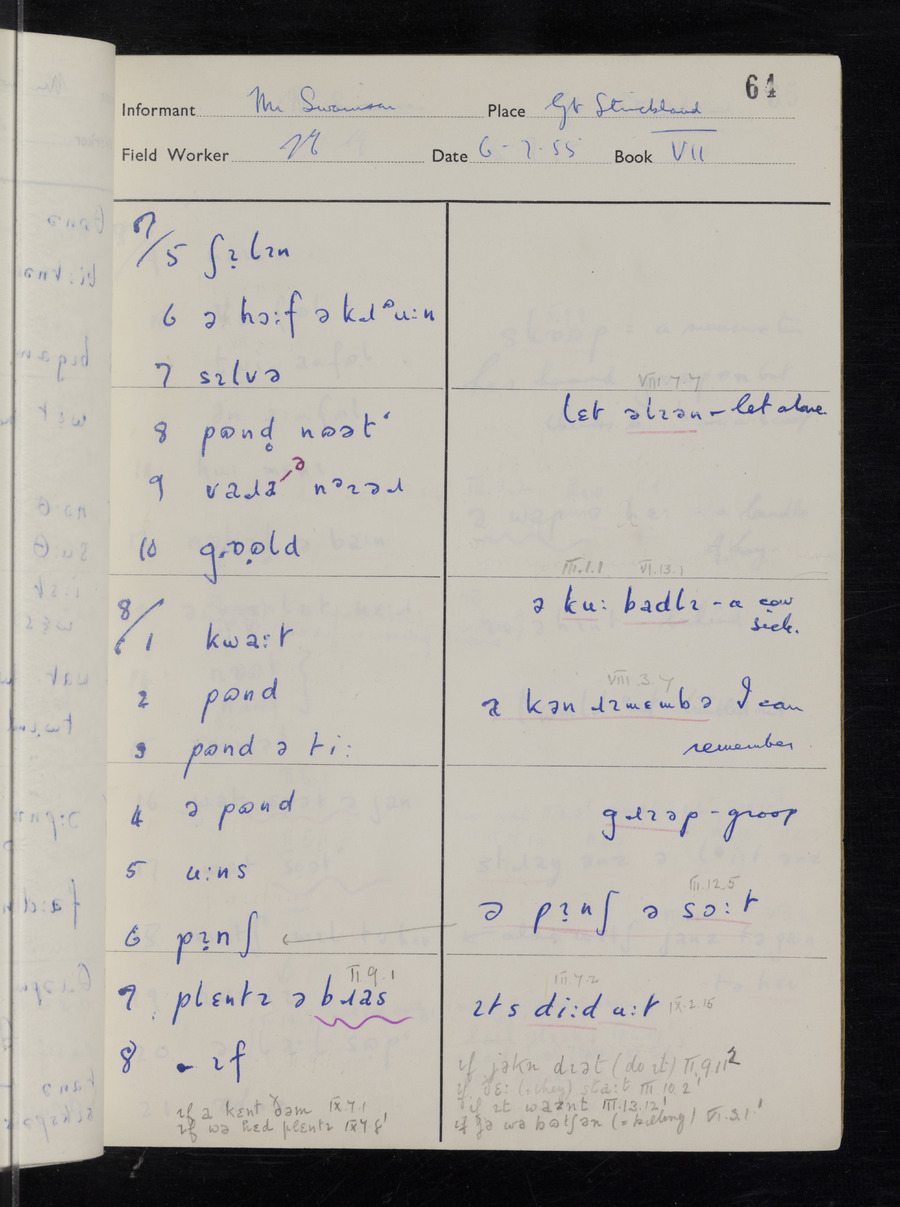 64
Informant Mr Swainson Place Gt Strickland
Field Worker Date 6-7-55 Book VII
7/5 ʃɪ̣lɪn
6 ə hɔ:f ə kɹᵊu:n
7 sɪlvə
8 pɷnd̥ nɷət'
9 vaɹə nᵊɪəɹ
10 gɷəld
8/1 kwa:t
2 pɷnd
3 pɷnd ə ti:
4 ə pɷnd
5 u:ns
6 pɪ̣nʃ
7 plɛntɪ ə bɹas II.9.1
8 - ɪf
ɪf a kɛnt ðəm IX.7.1
ɪf wə hɛd plɛntɪ IX.7.8'
VIII.7.7
lɛt əlɪən - let alone.
III.1.1 VI.13.1
ə ku: badlɪ - a cow
sick.
VIII.3.7
a kən ɹɪmɛmbə I can
remember
gɹɪəp - groop
III.12.5
ə pɪ̣nʃ ə sɔ:t
III.7.2
ɪts di:d u:t IX.2.15
ɪf jəkn dɪət (do it) II.9.11 2
ɪf ðɛ: (:they) sta:t III.10.2'
ɪf ɪt waznt III.13.12'
ɪf ðə wə bɷtʃən (= killing) VI.3.1'